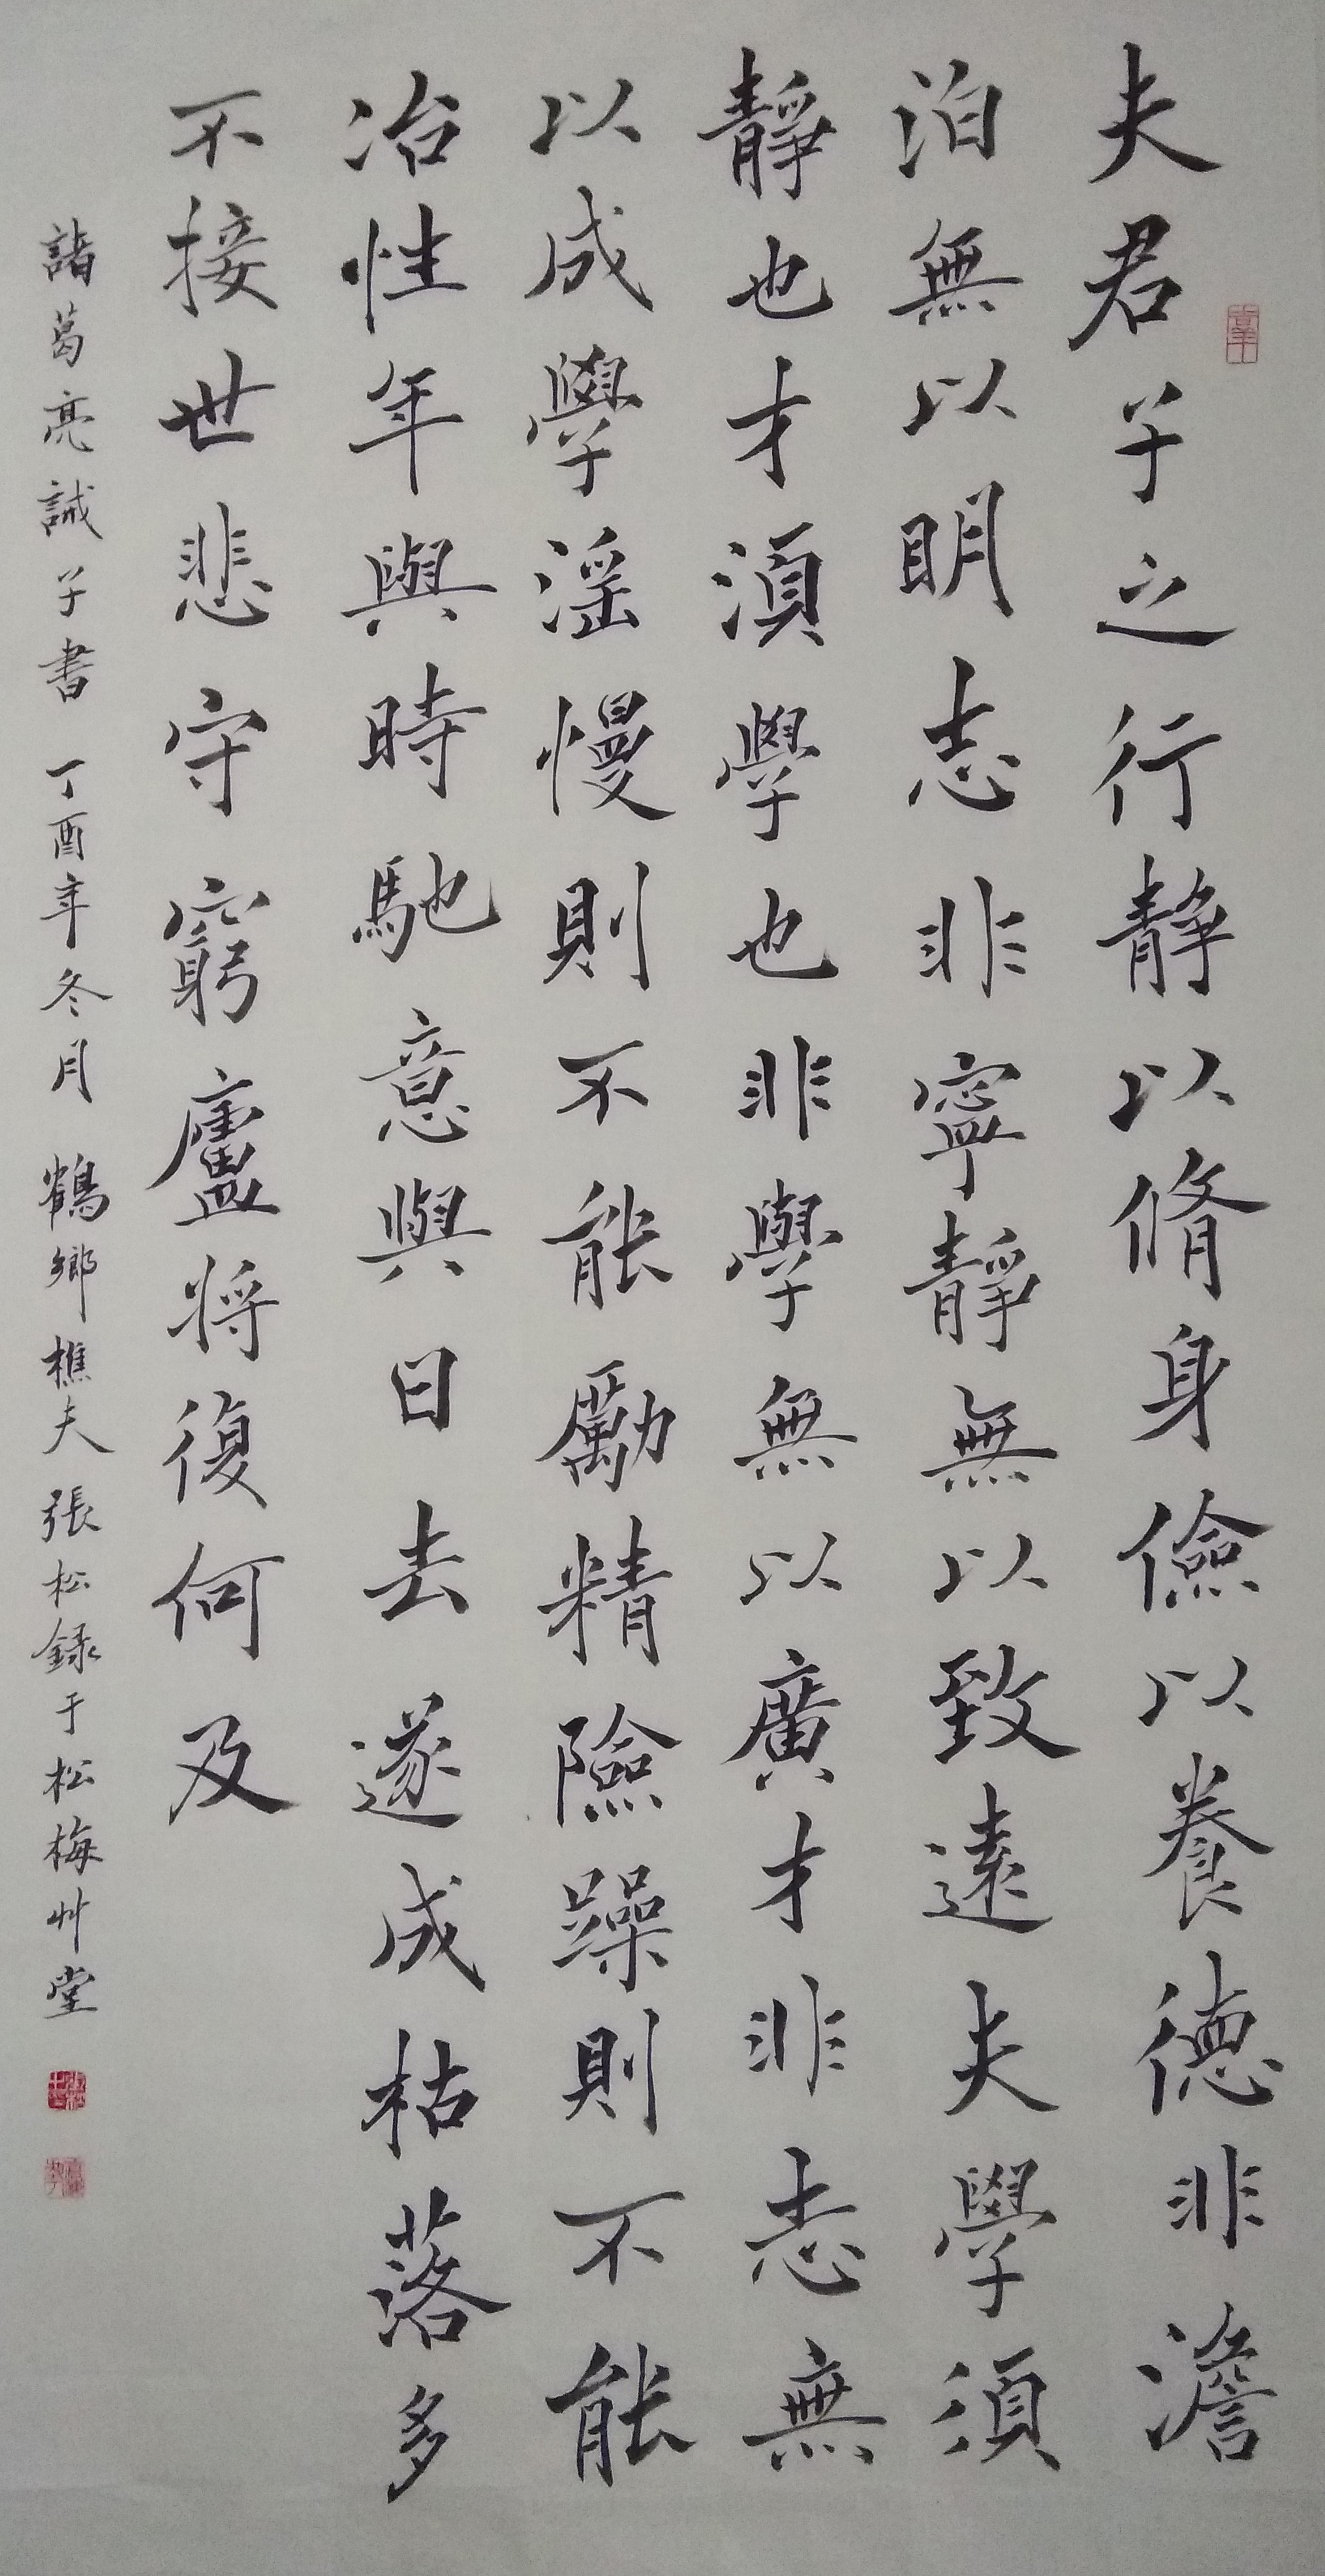 夫君子之行静以脩身儉以養德非澹
泊無以明志非寧靜無以致遠夫學須
靜也才湏學也非學無以廣才非志無
以成學滛慢則不能勵精險躁則不能
冶性年與時馳意與日去遂成枯落多
不接世悲守窮廬將復何及
諸葛亮誡子書 丁酉年冬月 鶴鄉樵夫張松録于松梅艸堂